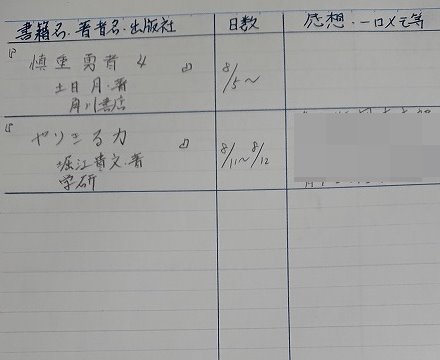 書籍名・著者名・出版社 日数 感想・一口メモ等
慎重勇者 4
土日月・著
角川書店
8/5〜
やりきる力
堀江貴文・著
学研
8/11〜8/12